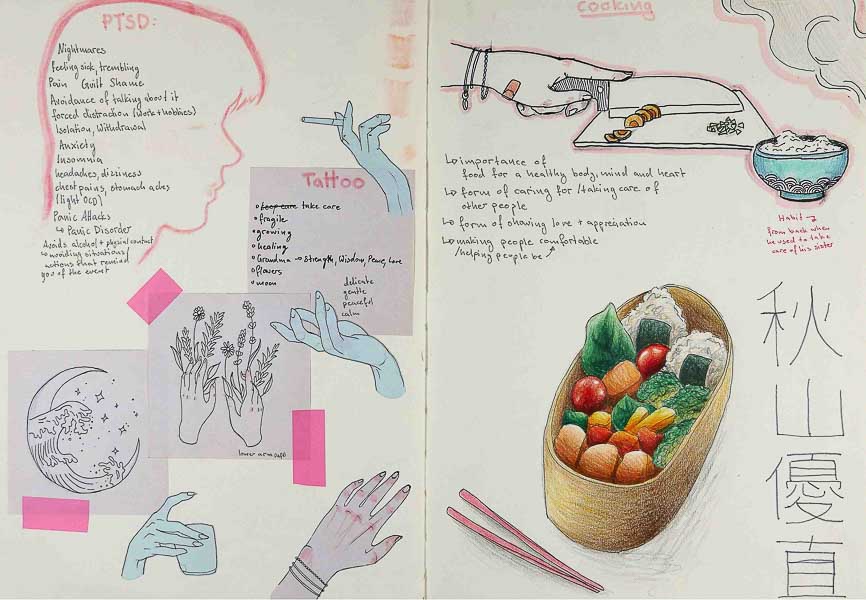 PTSD:
Nightmares
feeling sick, trembling
Pain Guilt Shame
Avoidance of talking about it
forced distraction (work+hobbies)
Isolation, Withdrawal
Anxiety
Insomnia
headaches, dizziness
chest pains, stomach aches
(light OCD)
Panic Attacks
↳ Panic Disorder
Avoids alcohol + physical contact
↳ avoiding situations/
actions that remind
you of the event
Tattoo
take care
fragile
growing
healing
Grandma → Strength, Wisdom, Peace, Love
flowers
moon
delicate
gentle
peaceful
calm
lower arm
cooking
↳ importance of
food for a healthy body, mind and heart
↳ form of caring for / taking care of
other people
↳ form of showing love + appreciation
↳ making people comfortable
/helping people be ↗
Habit →
from back when
he used to take
care of his sister
秋山優直